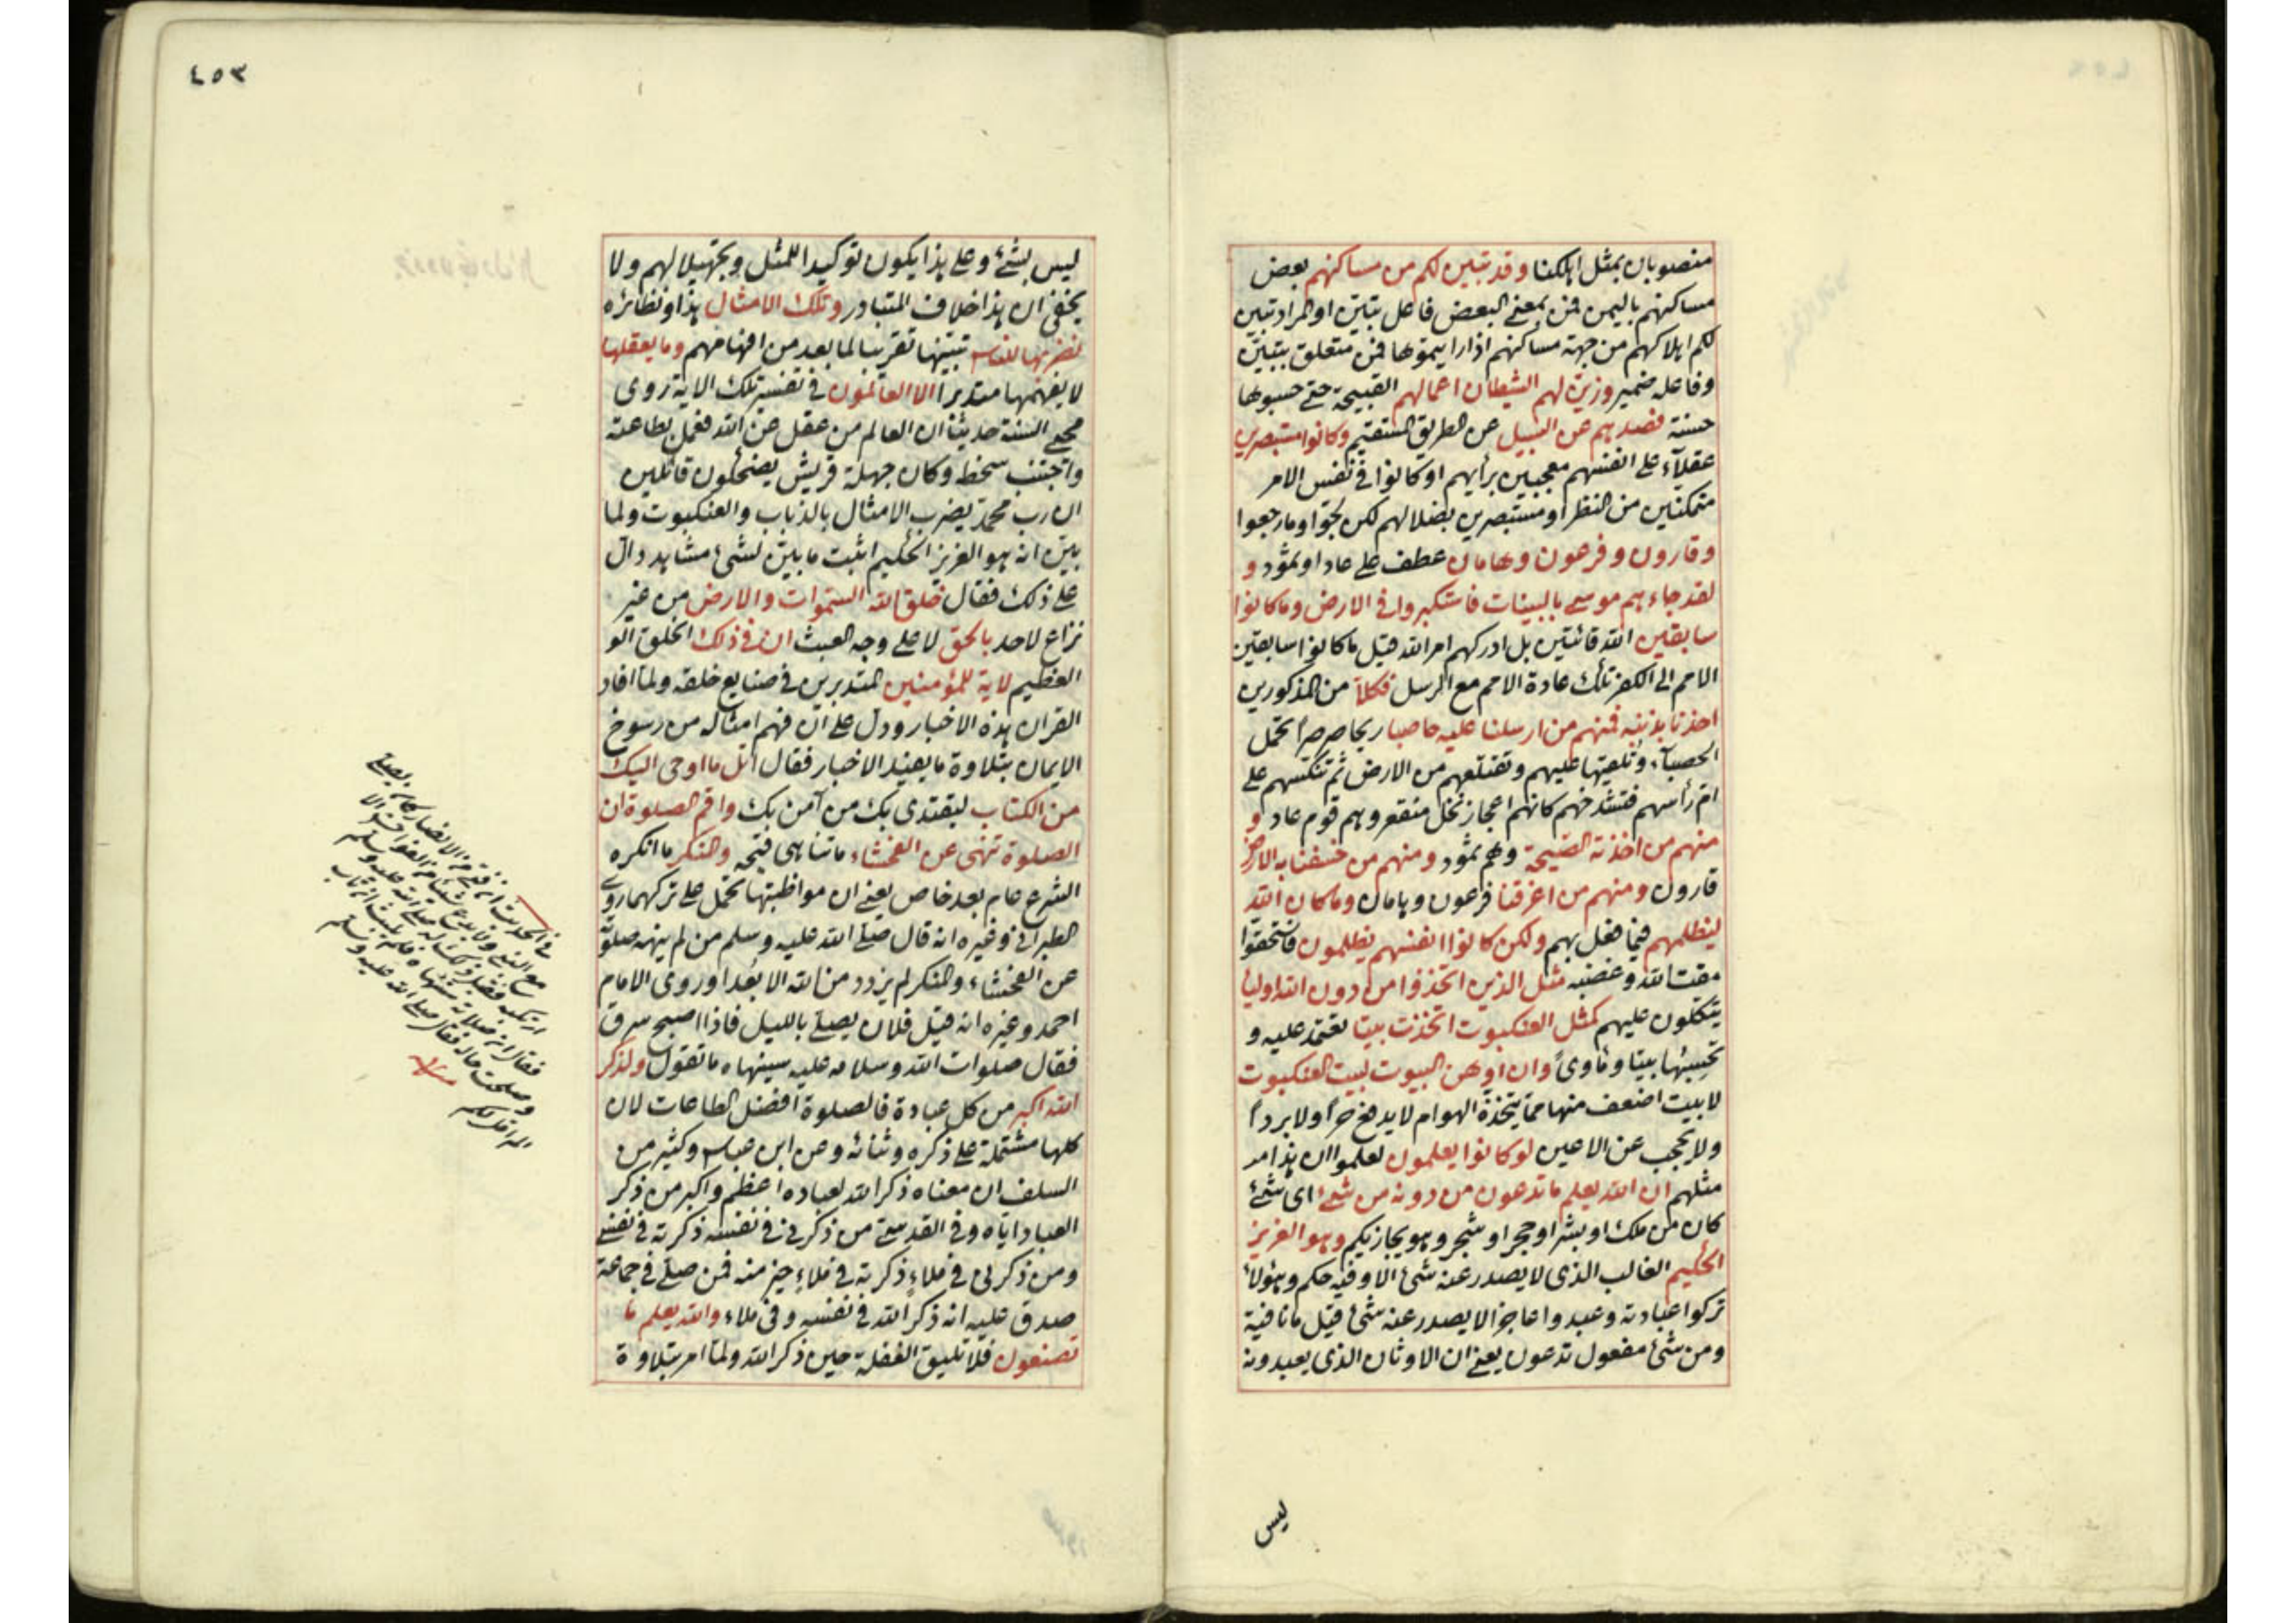 منصوبان بمثل اهلكنا وقد تبين لكم من مساكنهم بعض
مساكنهم باليمن فمن بمعنى البعض فاعل تبين او المراد تبين
لكم اهلاكهم من جهة مساكنهم اذا رايتموها فمن متعلق بتبين
وفاعله ضمير وزين لهم الشيطان اعمالهم القبيحة حتى حسبوها
حسنة فصدهم عن السبيل عن الطريق المستقيم وكانوا مستبصرين
عقلاء على انفسهم معجبين برأيهم او كانوا في نفس الامر
متمكنين من النظر او مستبصرين بضلالهم لكن لجوا وما رجعوا
وقارون وفرعون وهامان عطف على عادا وثمود و
لقد جاءهم موسى بالبينات فاستكبروا في الارض وما كانوا
سابقين الله فائتين بل ادركهم امر الله قيل ما كانوا سابقين
الامم الى الكفر تلك عادة الامم مع الرسل فكلا من المذكورين
اخذنا بذنبه فمنهم من ارسلنا عليه حاصبا ريحا صرصرا تحمل
الحصباء وتلقيها عليهم وتقتلعهم من الارض ثم تنكسهم على
ام رأسهم فتشدخهم كانهم اعجاز نخل منقعر وهم قوم عاد و
منهم من اخذته الصيحة وهم ثمود ومنهم من خسفنا به الارض
قارون ومنهم من اغرقنا فرعون وهامان وما كان الله
ليظلمهم فيما فعل بهم ولكن كانوا انفسهم يظلمون فاستحقوا
مقت الله وغضبه مثل الذين اتخذوا من دون الله اوليا
يتكلون عليهم كمثل العنكبوت اتخذت بيتا تعتمد عليه و
تحسبها بيتا ومأوى وان اوهن البيوت لبيت العنكبوت
لا بيت اضعف منها مما يتخذه الهوام لا يدفع حرا ولا بردا
ولا تحجب عن الاعين لو كانوا يعلمون لعلموا ان هذا مد
مثلهم ان الله يعلم ما تدعون من دونه من شئ اي شئ
كان من ملك او بشر او حجر او شجر وهو يجازيكم وهو العزيز
الحكيم الغالب الذي لا يصدر عنه شئ الا وفيه حكم وهؤلاء
تركوا عبادته وعبدوا عاجزا لا يصدر عنه شئ قيل ما نافية
ومن شئ مفعول تدعون يعني ان الاوثان الذي يعبدونه
ليس
٤٥٣
ليس بشئ وعلى هذا يكون توكيدا للمثل وتجهيلا لهم ولا
يخفى ان هذا خلاف المتبادر وتلك الامثال هذا ونظائره
نضربها للناس تبينها تقريبا لما بعد من افهامهم وما يعقلها
لا يفهمها متدبرا الا العالمون في تفسير تلك الاية روى
محيي السنة حديثا ان العالم من عقل عن الله فعمل بطاعته
واجتنب سخطه وكان جهلة قريش يضحكون قائلين
ان رب محمد يضرب الامثال بالذباب والعنكبوت ولما
بين انه هو العزيز الحكيم اثبت ما بين لشئ مشاهد دال
على ذلك فقال خلق الله السموات والارض من غير
نزاع لاحد بالحق لا على وجه العبث ان في ذلك الخلق الو
العظيم لاية للمؤمنين المتدبرين في صنايع خلقه ولما افاد
القران هذه الاخبار ودل على ان فهم امثاله من رسوخ
الايمان بتلاوة ما يفيد الاخبار فقال اتل ما اوحى اليك
من الكتاب ليقتدي بك من آمن بك واقم الصلوة ان
الصلوة تنهى عن الفحشاء ما تناهى قبحه والمنكر ما انكره
الشرع عام بعد خاص يعني ان مواظبتها تحمل على تركهما روى
الطبراني وغيره انه قال صلى الله عليه وسلم من لم ينهه صلوته
عن الفحشاء والمنكر لم يزدد من الله الا بعدا وروى الامام
احمد وغيره انه قيل فلان يصلي بالليل فاذا اصبح سرق
فقال صلوات الله وسلامه عليه سينهاه ما تقول ولذكر
الله اكبر من كل عبادة فالصلوة افضل الطاعات لان
كلها مشتملة على ذكره وثنائه وعن ابن عباس وكثير من
السلف ان معناه ذكر الله لعباده اعظم واكبر من ذكر
العباد اياه وفي القدسي من ذكرني في نفسه ذكرته في نفسي
ومن ذكرني في ملاء ذكرته في ملاء خير منه فمن صلى في جماعة
صدق عليه انه ذكر الله في نفسه وفي ملاء والله يعلم ما
تصنعون فلا تليق الغفلة حين ذكر الله ولما امر بتلاوة
في الحديث ان فتى من الانصار كان يصلي
مع النبي ولا يدع شيئا من الفواحش الا
ارتكبه فقيل ذلك له صلى الله عليه وسلم
فقال ان صلاته ستنهاه فلم يلبث ان تاب
وصلحت حاله فقال صلى الله عليه وسلم
الم اقل لكم